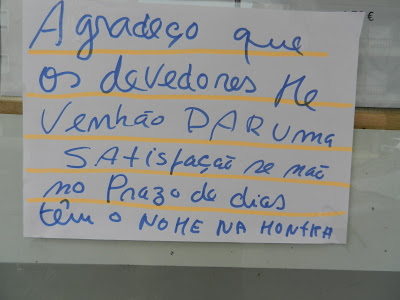 Agradeço que
os devedores Me
Venhão DAR Uma
SAtisfação se não
no Prazo de dias
têm o NOME NA MONTRA